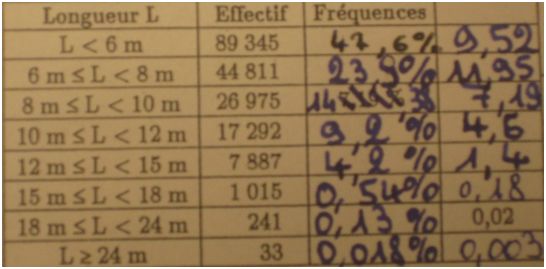 Longueur L Effectif Fréquences
L < 6 m 89 345 47,6% 9,52
6 m ≤ L < 8 m 44 811 23,9% 11,95
8 m ≤ L < 10 m 26 975 14 38 7,19
10 m ≤ L < 12 m 17 292 9,2 % 4,6
12 m ≤ L < 15 m 7 887 4,2 % 1,4
15 m ≤ L < 18 m 1 015 0,54% 0,18
18 m ≤ L < 24 m 241 0,13 % 0,02
L ≥ 24 m 33 0,018% 0,003